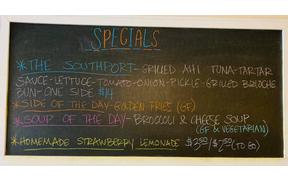 SPECIALS
*THE SOUTHPORT-GRILLED AHI TUNA-TARTAR
SAUCE-LETTUCE-TOMATO-ONION-PICKLE-GRILLED BRIOCHE
BUN-ONE SIDE $14
*SIDE OF THE DAY-GOLDEN FRIES (GF)
*SOUP OF THE DAY-BROCCOLI & CHEESE SOUP
(GF & VEGETARIAN)
*HOMEMADE STRAWBERRY LEMONADE $2.50/$7.50 (TO GO)